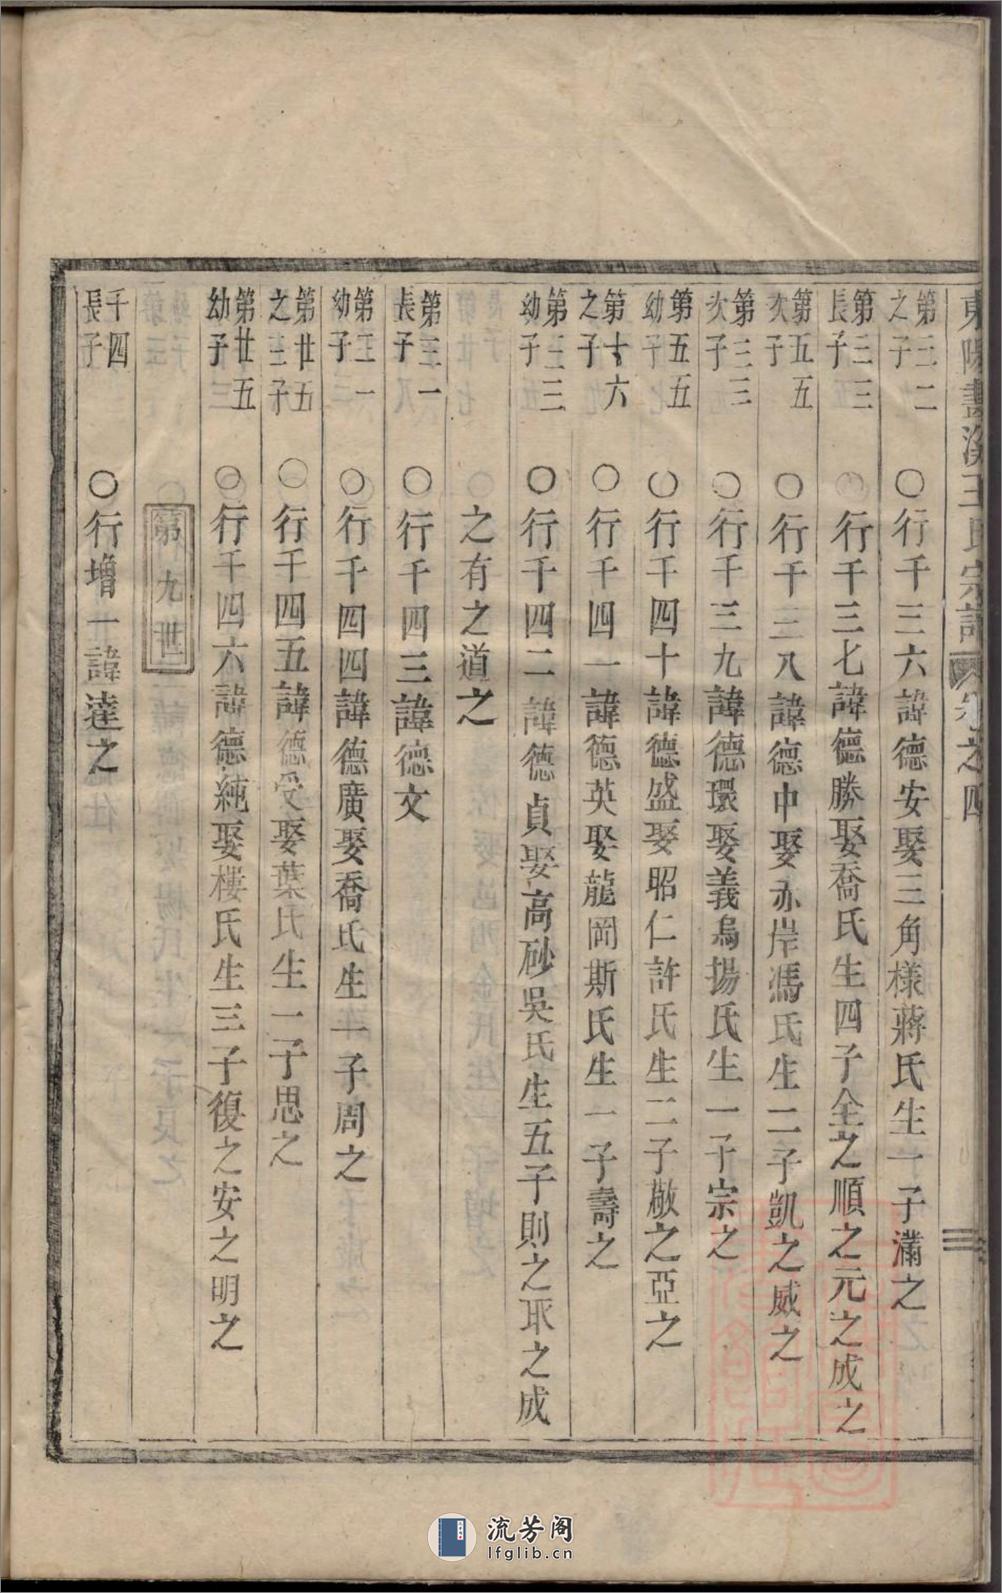 東陽畫溪王氏宗譜 卷之四
第三二之子 ○行千三六諱德安娶三角樣蔣氏生一子滿之
第三三長子 ○行千三七諱德勝娶喬氏生四子全之順之元之成之
第五五次子 ○行千三八諱德中娶赤岸馮氏生二子凱之威之
第三三次子 ○行千三九諱德環娶義烏楊氏生一子宗之
第五五幼子 ○行千四十諱德盛娶昭仁許氏生二子敬之亞之
第十六之子 ○行千四一諱德英娶龍岡斯氏生一子壽之
第三三幼子 ○行千四二諱德貞娶高砂吳氏生五子則之取之成
之有之道之
第三一長子 ○行千四三諱德文
第三一幼子 ○行千四四諱德廣娶喬氏生一子周之
第廿五之三子 ○行千四五諱德受娶葉氏生一子思之
第廿五幼子 ○行千四六諱德純娶樓氏生三子復之安之明之
第九世
千四長子 ○行增一諱達之
流芳閣
lfglib.cn